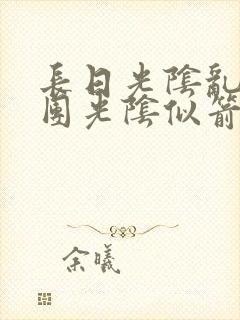 長日光陰亂
團光陰似箭
余曦